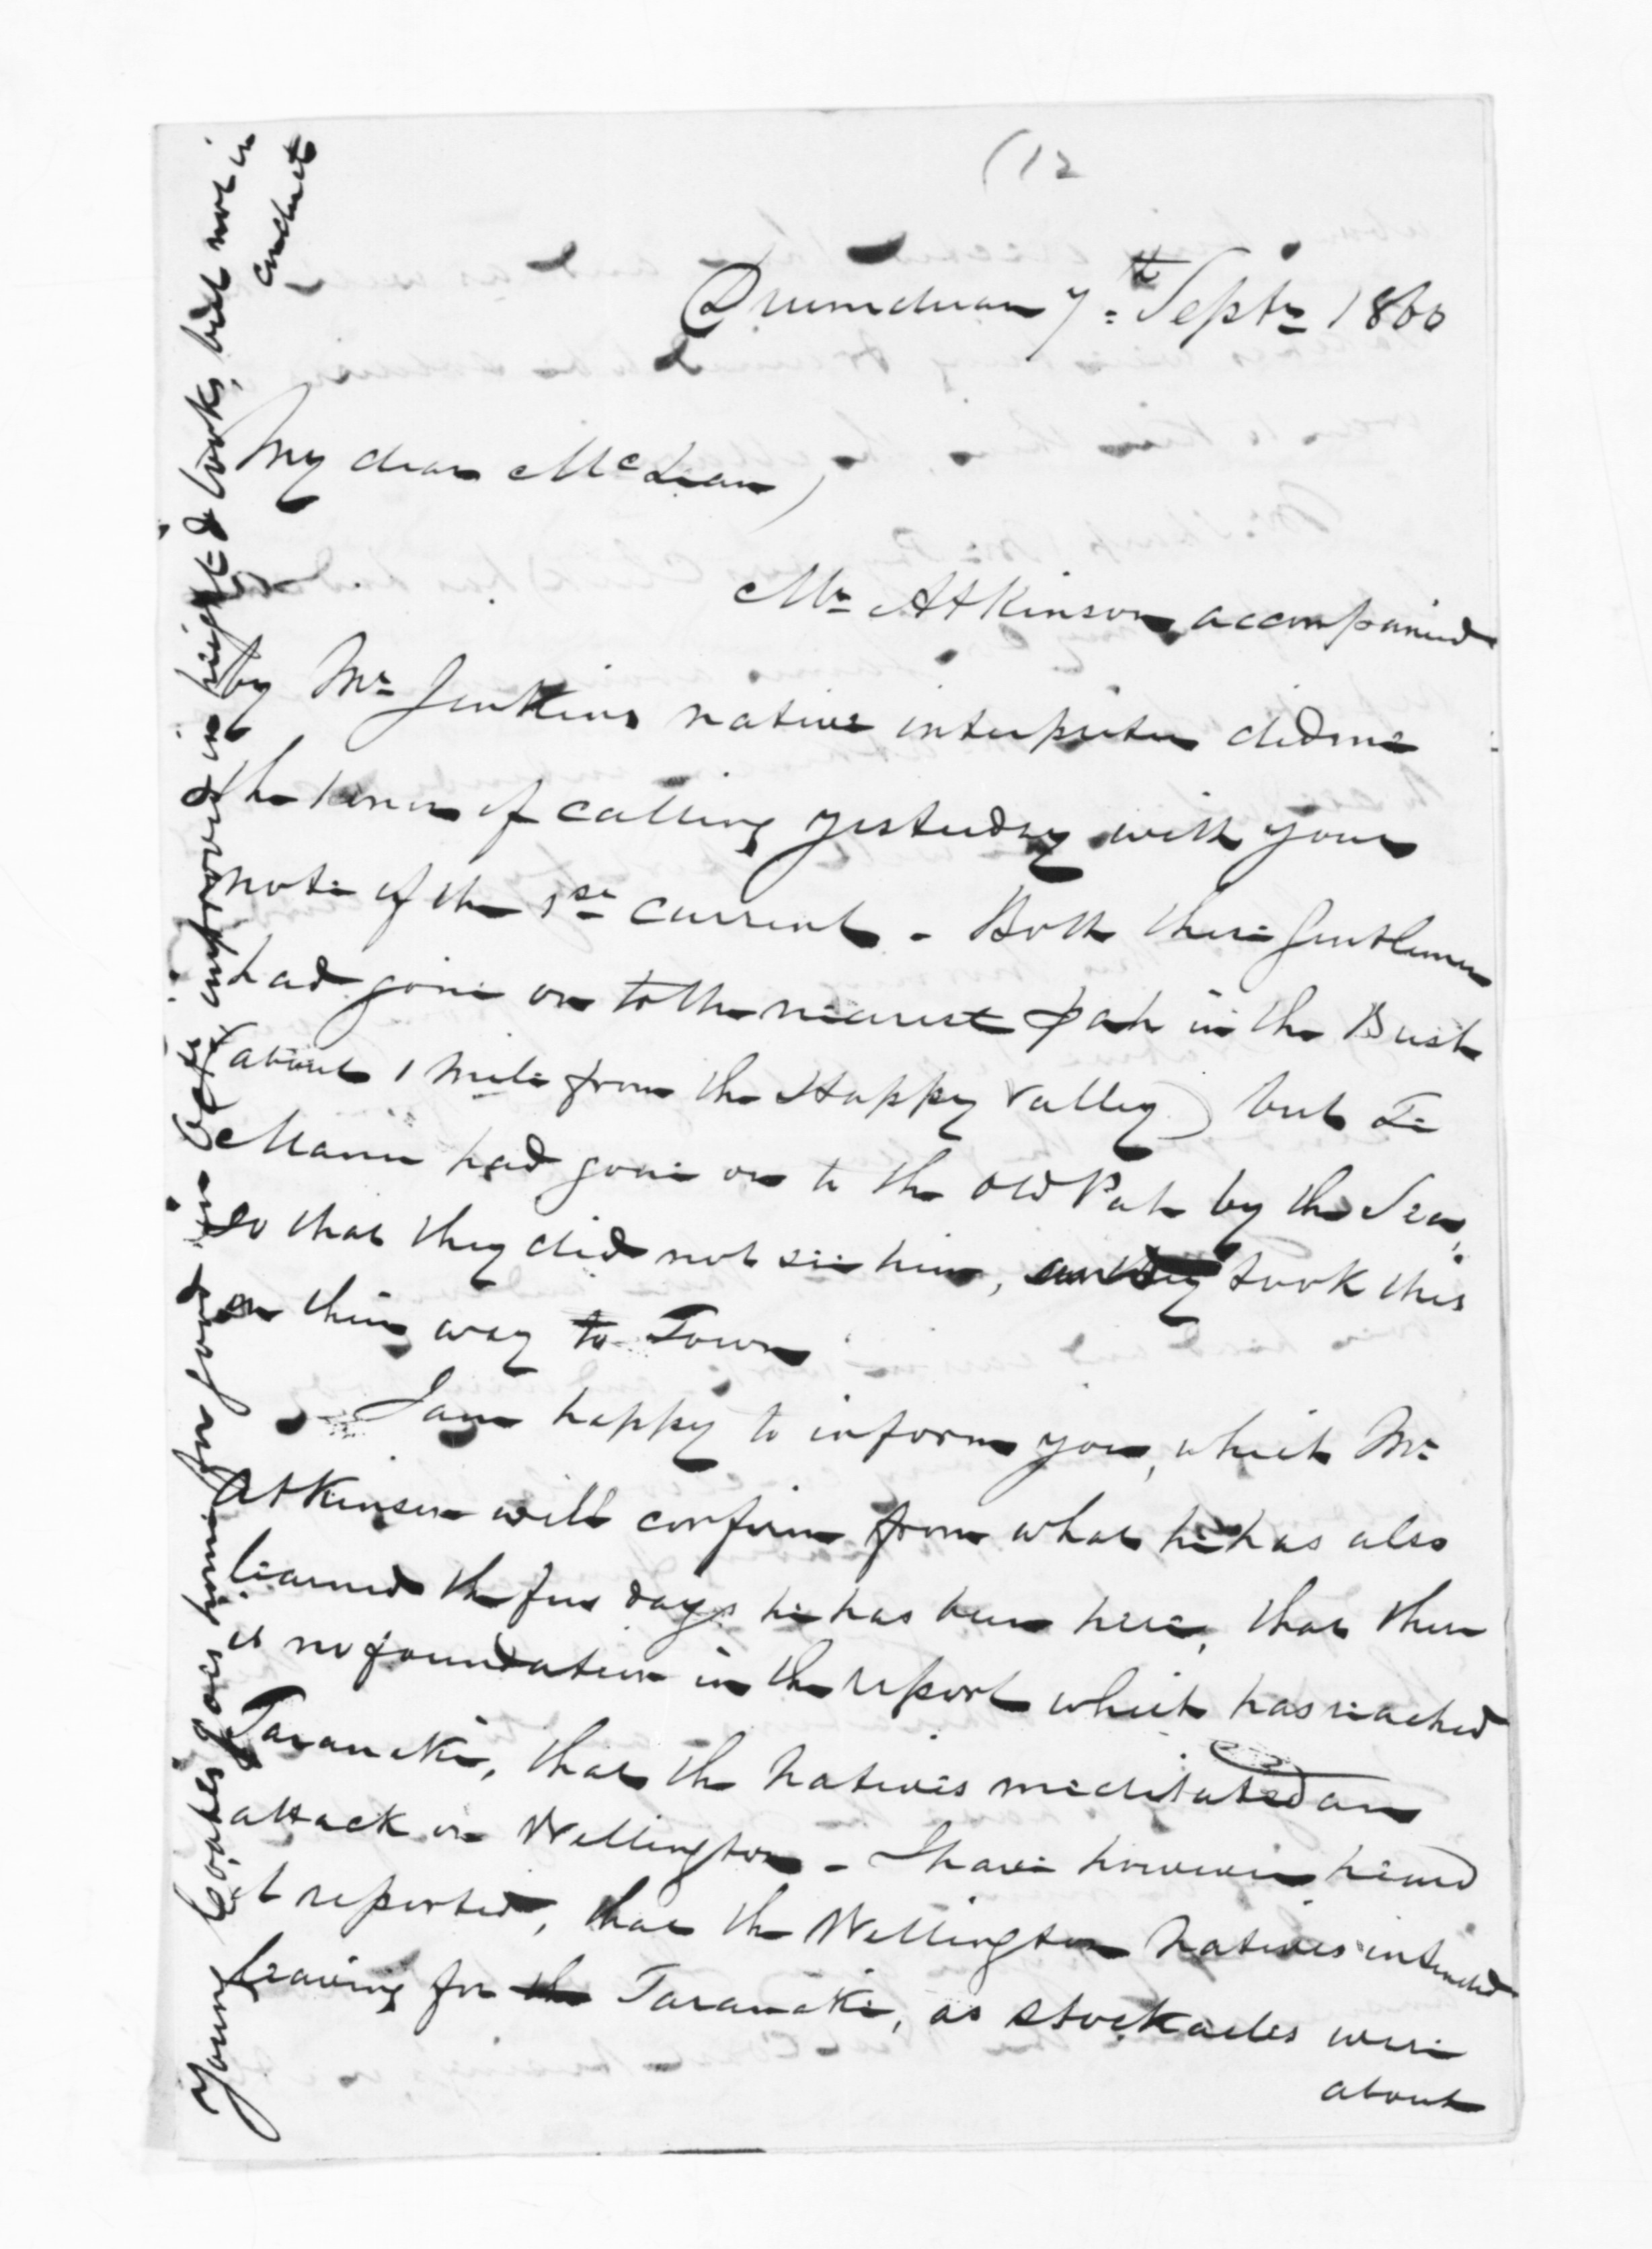 (12
Drumduan 7th Septr 1860
My dear McLean,
Mr Atkinson accompanied
by Mr Jenkins native interpreter did me
the honor of calling yesterday with your
note of the 1st current - Both these gentlemen
had gone on to the nearest Pah in the Bush
(about 1 mile from the Happy Valley) but Te
Manu had gone on to the old Pah by the Sea,
so that they did not see him, took this
on their way to Town
I am happy to inform you, which Mr
Atkinson will confirm from what he has also
learned the few days he has been here, that there
is no foundation in the report which has reached
Taranaki, that the natives meditated an
attack on Wellington - I have however heard
it reported, that the Wellington natives intended
leaving for the Taranaki, as stockades were
about
Young Coates goes home for good in Octr improved in height & looks, but not in
conduct